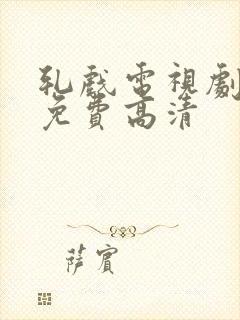 乳戲電視劇
免費高清
薩賓